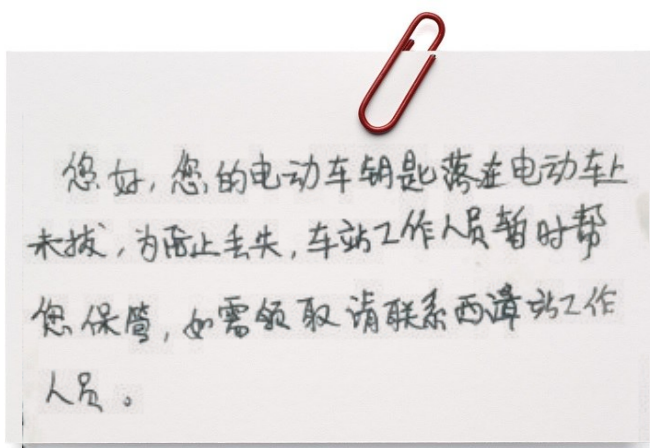 您好，您的电动车钥匙落在电动车上
未拔，为防止丢失，车站工作人员暂时帮
您保管，如需领取请联系西漳站工作
人员。